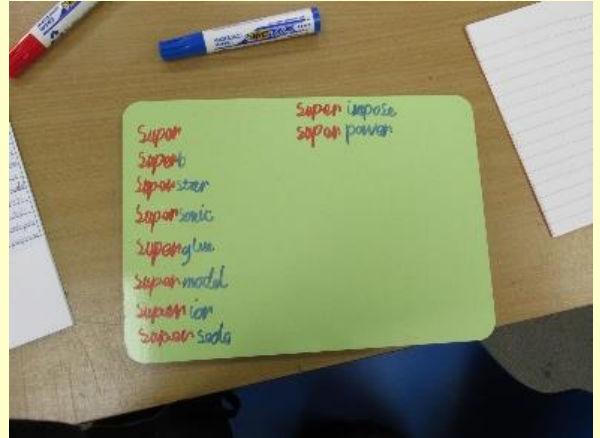 super
superb
superstar
supersonic
superglue
supermodel
superior
supersede
superimpose
superpower